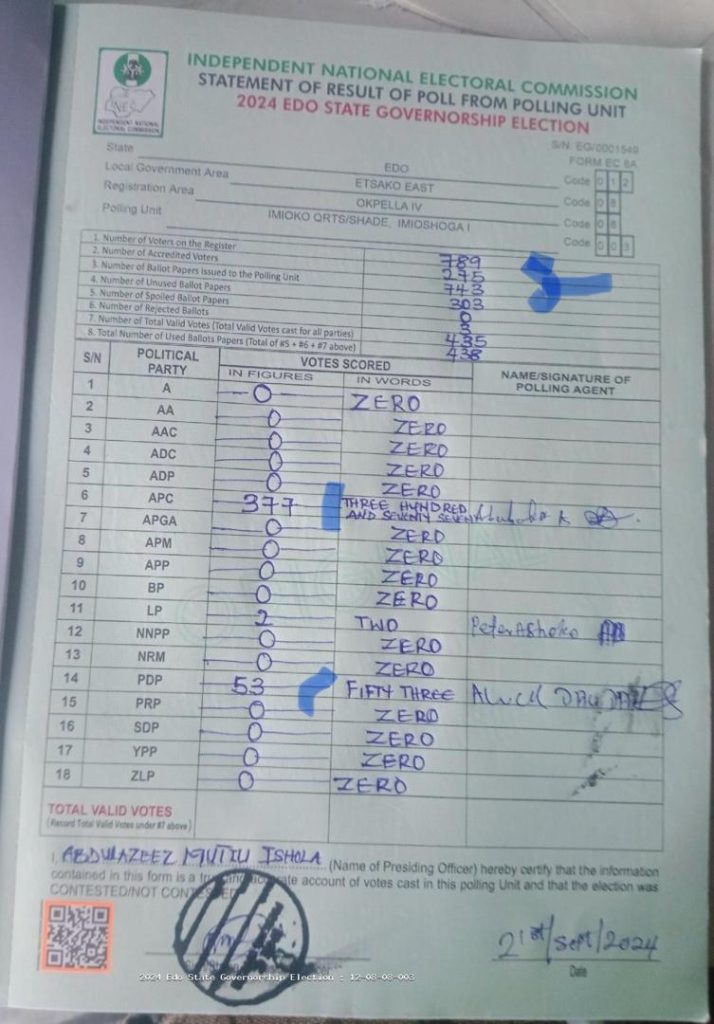 INDEPENDENT NATIONAL ELECTORAL COMMISSION
STATEMENT OF RESULT OF POLL FROM POLLING UNIT
2024 EDO STATE GOVERNORSHIP ELECTION
INDEPENDENT NATIONAL
ELECTORAL COMMISSION
S/N: EG/0001549
FORM EC 8A
State EDO Code 0 1 2
Local Government Area ETSAKO EAST Code 0 8
Registration Area OKPELLA IV Code 0 8
Polling Unit IMIOKO QRTS/SHADE, IMIOSHOGA I Code 0 0 3
1. Number of Voters on the Register 789
2. Number of Accredited Voters
3. Number of Ballot Papers Issued to the Polling Unit 743
4. Number of Unused Ballot Papers 303
5. Number of Spoiled Ballot Papers 0
6. Number of Rejected Ballots 3
7. Number of Total Valid Votes (Total Valid Votes cast for all parties) 435
8. Total Number of Used Ballots Papers (Total of #5 + #6 + #7 above) 438
S/N POLITICAL PARTY VOTES SCORED NAME/SIGNATURE OF POLLING AGENT
IN FIGURES IN WORDS
1 A 0 ZERO
2 AA 0 ZERO
3 AAC 0 ZERO
4 ADC 0 ZERO
5 ADP 0 ZERO
6 APC 377 THREE HUNDRED AND SEVENTY SEVEN
7 APGA 0 ZERO
8 APM 0 ZERO
9 APP 0 ZERO
10 BP 0 ZERO
11 LP 2 TWO Peter Ashoko
12 NNPP 0 ZERO
13 NRM 0 ZERO
14 PDP 53 FIFTY THREE
15 PRP 0 ZERO
16 SDP 0 ZERO
17 YPP 0 ZERO
18 ZLP 0 ZERO
TOTAL VALID VOTES
(Record Total Valid Votes under #7 above)
I, ABDULAZEEZ MUTIU ISHOLA (Name of Presiding Officer) hereby certify that the information
contained in this form is a true and accurate account of votes cast in this polling Unit and that the election was
CONTESTED/NOT CONTESTED
21st/Sept/2024
Date
2024 Edo State Governorship Election : 12-08-08-003